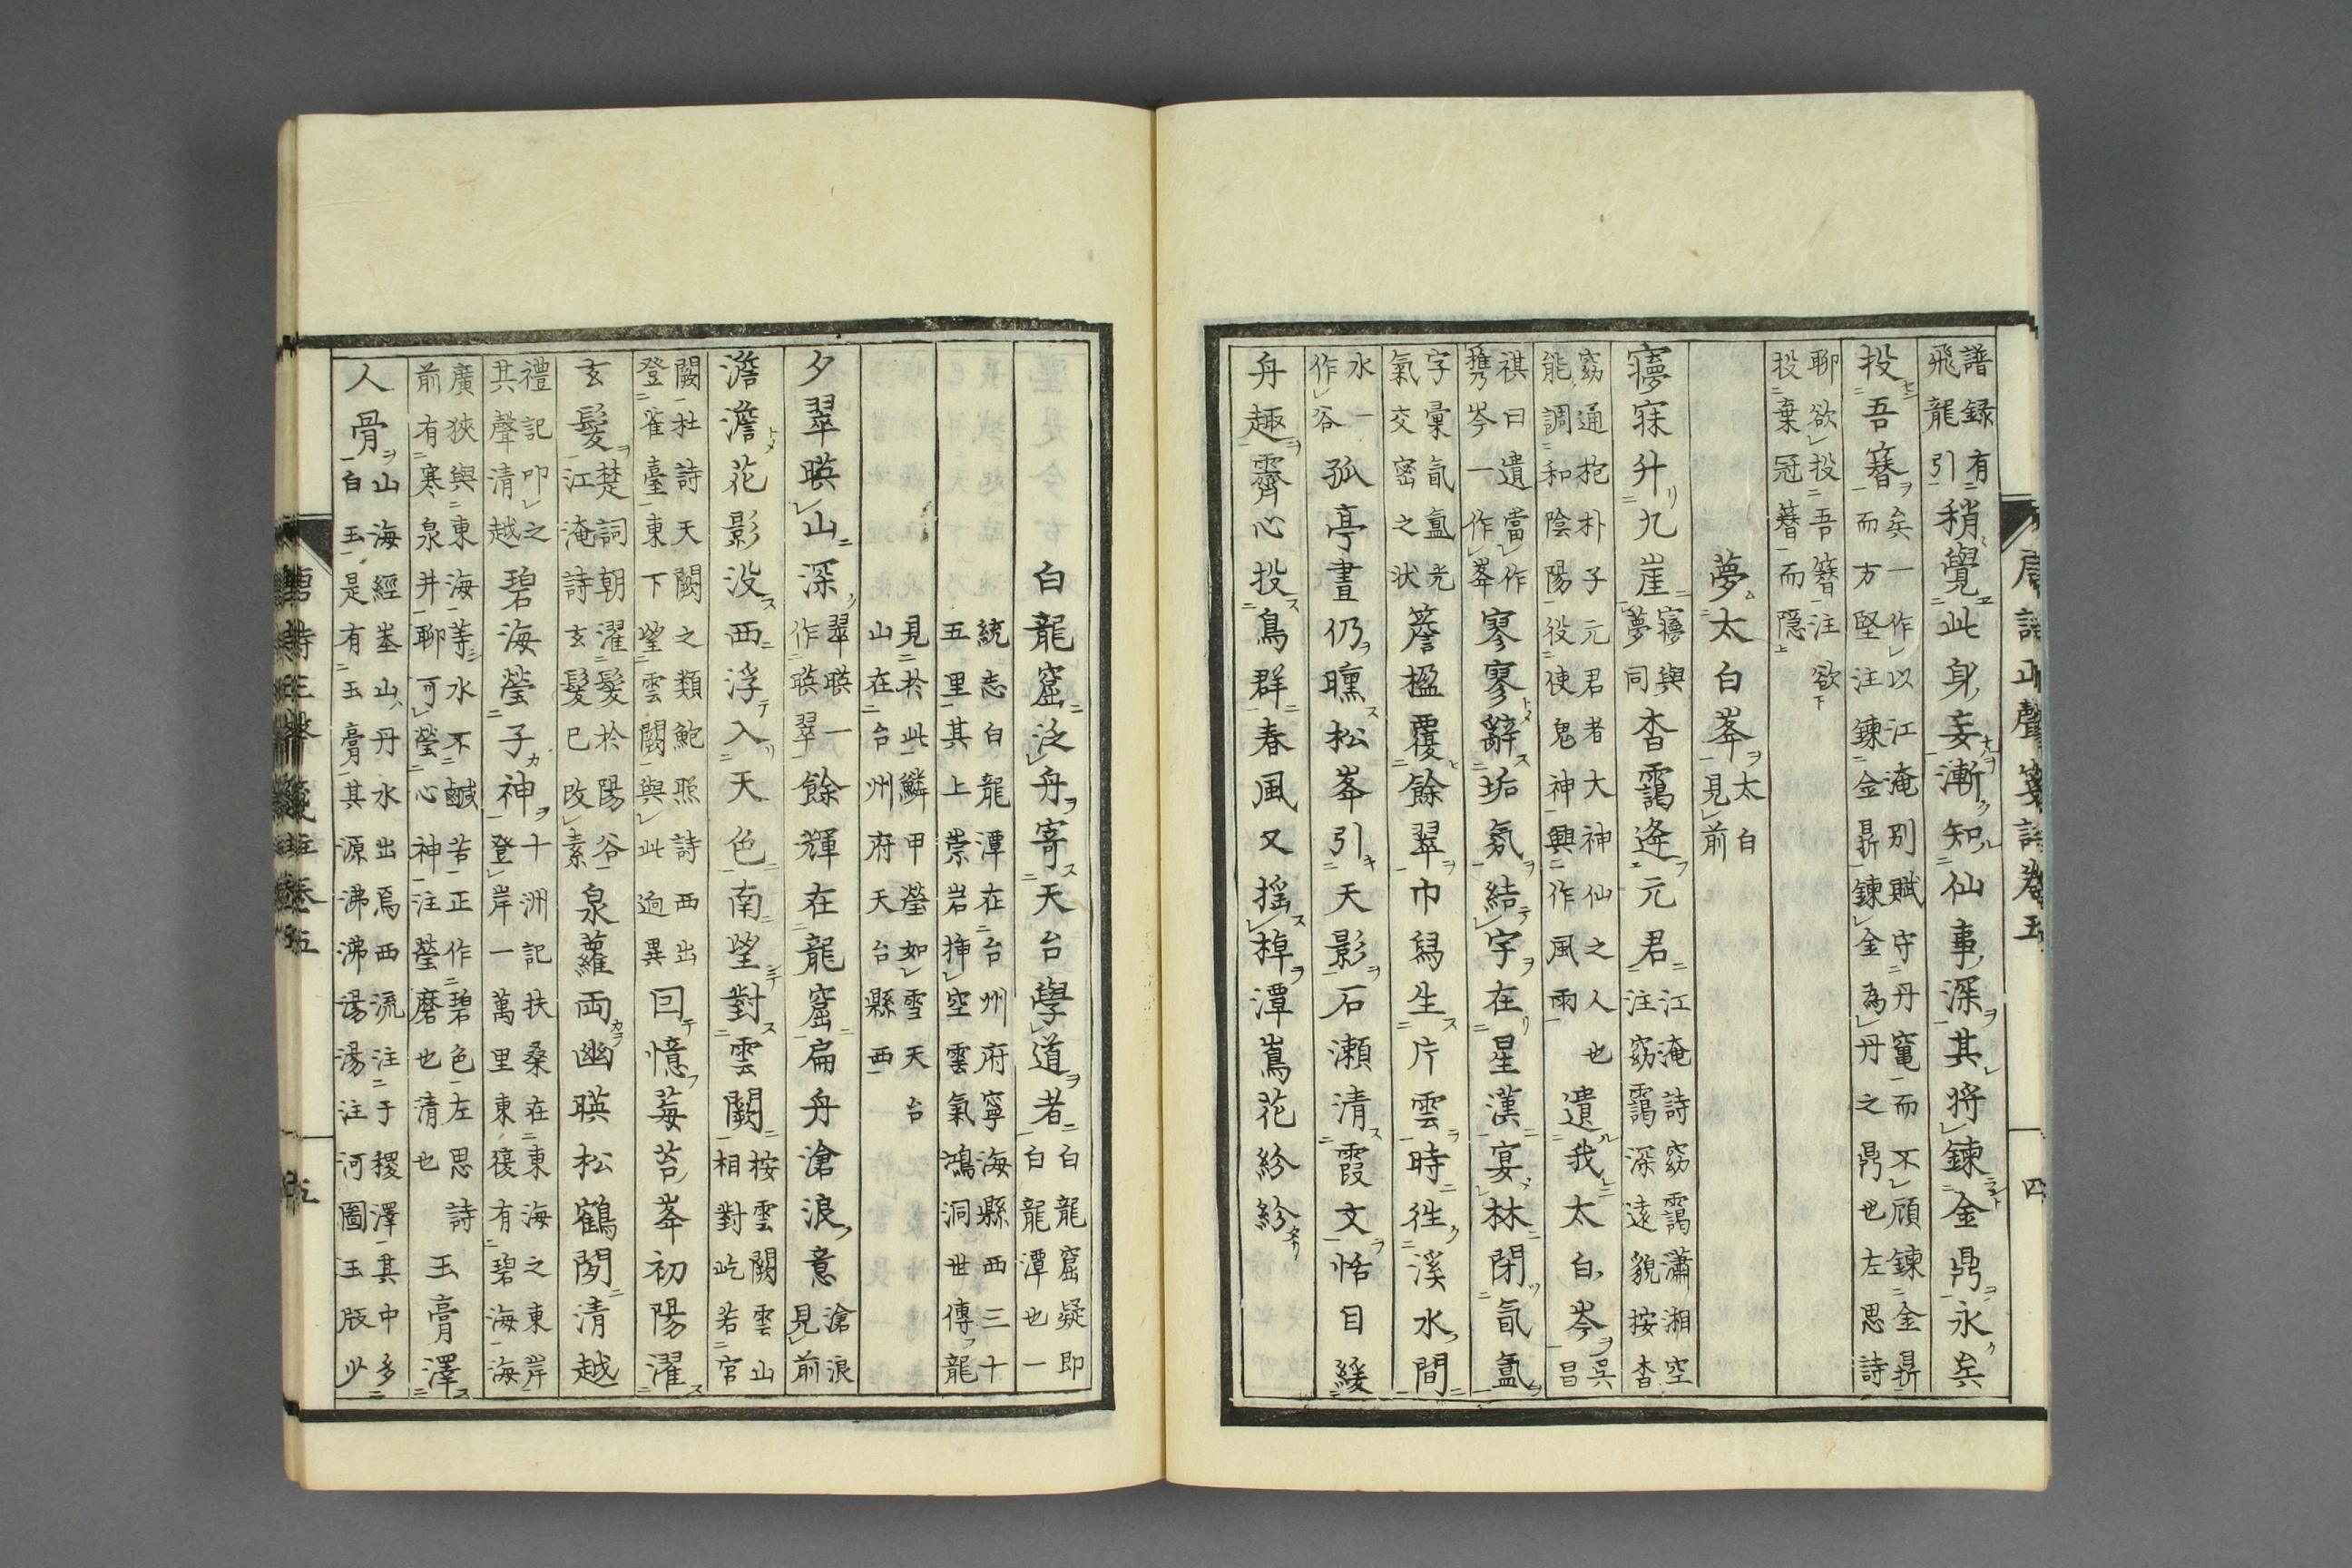 譜録有飛龍引稍覺此身妄漸知仙事深其将鍊金鼎永矣
投吾簪矣一作以江淹别賦守丹竈而不顧鍊金鼎而方堅注鍊金鼎鍊金為丹之鼎也左思詩
聊欲投吾簪注欲投棄冠簪而隠
夢太白峯太白見前
寱寐升九崖寱與夢同杳靄逢元君江淹詩窈靄瀟湘空注窈靄深遠貌按杳
窈通抱朴子元君者大神仙之人也能調和陰陽役使鬼神興作風雨遺我太白岑呉昌
祺曰遺當作携岑一作峯寥寥辭垢氛結宇在星漢宴林閉氤氳
字彙氤氳元氣交密之状簷楹覆餘翠巾舄生片雲時徃溪水間
水一作谷孤亭晝仍曛松峯引天影石瀬清霞文恬目緩
舟趣霽心投鳥群春風又揺棹潭嶌花紛紛
唐詩正聲箋註卷五
四
白龍窟泛舟寄天台學道者白龍窟疑即白龍潭也一
統志白龍潭在台州府寧海縣西三十五里其上崇岩挿空雲氣鴻洞世傳龍
見於此鱗甲瑩如雪天台山在台州府天台縣西
夕翠暎山深翠暎一作暎翠餘輝在龍窟扁舟滄浪意滄浪見前
澹澹花影没西浮入天色南望對雲闕按雲闕雲山相對屹若宮
闕杜詩天闕之類鮑照詩西出登雀臺東下望雲闕與此迥異回憶莓苔峯初陽濯
玄髮楚詞朝濯髮於陽谷江淹詩玄髮已改素泉蘿両幽暎松鶴間清越
禮記叩之其聲清越碧海瑩子神十洲記扶桑在東海之東岸登岸一萬里東復有碧海海
廣狹與東海等水不鹹苦正作碧色左思詩前有寒泉井聊可瑩心神注瑩磨也清也玉膏澤
人骨山海經峚山丹水出焉西流注于稷澤其中多白玉是有玉膏其源沸沸湯湯注河圖玉版少
唐詩正聲箋註卷五
五